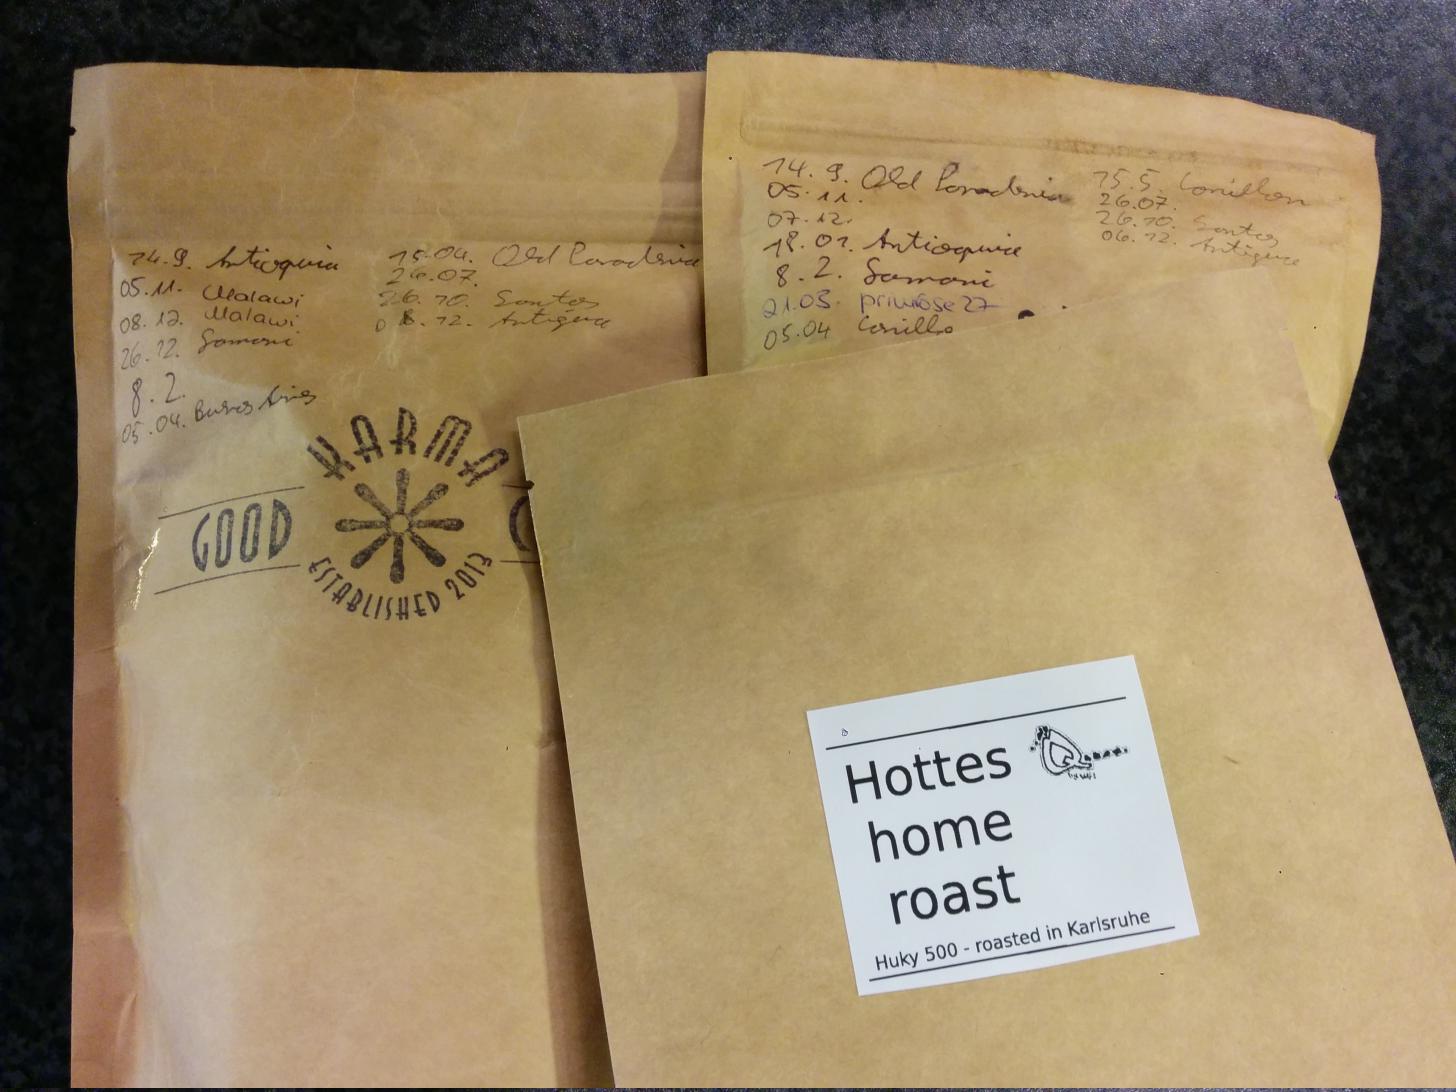 14.9. Antioquia
05.11. Malawi
08.12. Malawi
26.12. Samoni
8.2.
05.04. Buenos Aires
15.04. Old Paradenia
26.07.
26.10. Santos
08.12. Antigua
KARMA
GOOD
ESTABLISHED 2013
14.9. Old Paradenia
05.11.
07.12.
18.01. Antioquia
8.2. Samoni
21.03. primrose 27
05.04 Conillo
15.5. Conillon
26.07.
26.10. Santos
06.12. Antigua
Hottes
home
roast
Huky 500 - roasted in Karlsruhe